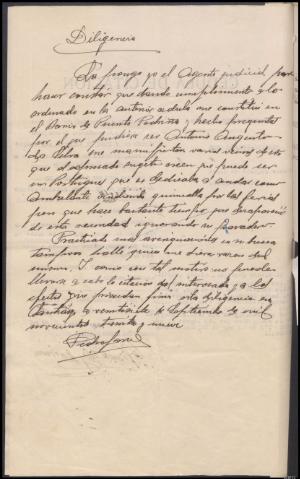 Diligencia
La pongo yo el Agente judicial para
hacer constar que dando cumplimiento a lo
ordenado en la anterior cedula me constitui en
el Barrio de Puente Pedriña y hechas preguntas
por el que pudiera ser Antonio Augusto
da Silva me manifiestan varios vecinos de este
que el expresado sujeto creen que puede ser
un Portugues que se dedicaba a andar como
ambulante vendiendo quincalla por las ferias
pero que hace bastante tiempo que desaparecio
de esta vecindad ignorando su paradero
Practicadas mas averiguaciones en su busca
tampoco halle quien me diera razon del
mismo. Y como con tal motivo no puedo
llevar a cabo la citacion del interesado y a los
efectos que procedan firmo esta diligencia en
Santiago a veintisiete de Septiembre de mil
novecientos treinta y nueve